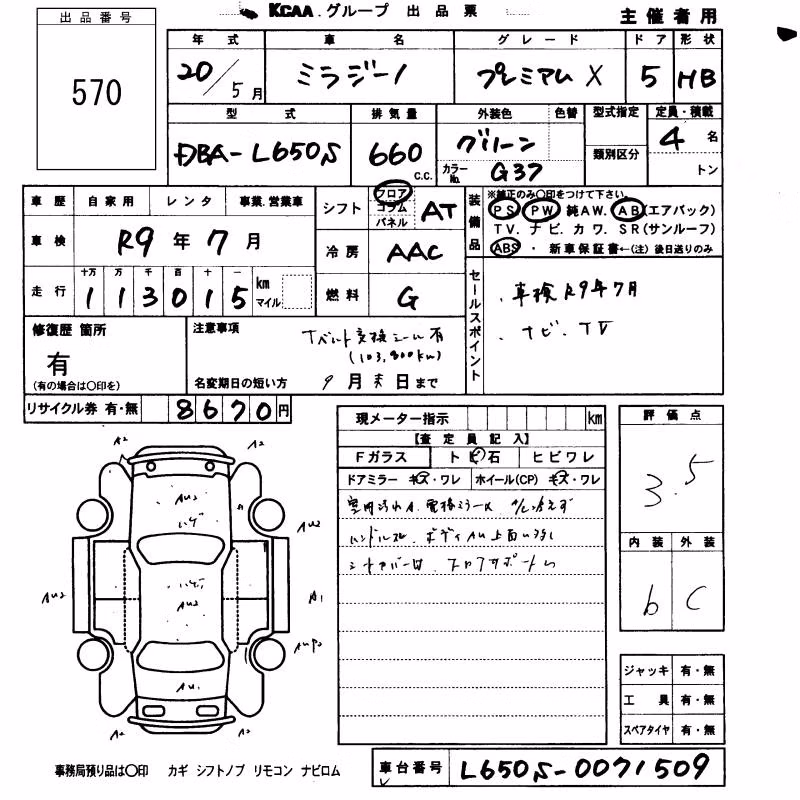 KCAA.グループ 出品票
主催者用
出品番号
570
年式 車名 グレード ドア 形状
20/5月 ミラジーノ プレミアム X 5 HB
型式 排気量 外装色 色替 型式指定 定員・積載
DBA-L650S 660 c.c. グリーン 類別区分 4名
カラーNo. G37 トン
車歴 自家用 レンタ 事業.営業車
シフト フロア コラム パネル AT
装備品
※純正のみ○印をつけて下さい。
PS PW 純AW. AB(エアバック)
TV. ナビ. カワ. SR(サンルーフ)
ABS ・ 新車保証書←(注) 後日送りのみ
車検 R9年7月
冷房 AAC
走行 十万 万 千 百 十 一
113015 km マイル
燃料 G
セールスポイント
.車検R9年7月
.ナビ.TV
修復歴 箇所
有
(有の場合は○印を)
注意事項
Tベルト交換シール有
(103,800km)
名変期日の短い方 9月末日まで
リサイクル券 有・無 8670円
現メーター指示 km
【査定員記入】
Fガラス ト ビ 石 ヒビワレ
ドアミラー キズ・ワレ ホイール(CP) キズ・ワレ
評価点
3.5
内装 外装
b C
A2 A2
AU2
AU2
AU2
AU2
A1
AU1
A2 A2
ジャッキ 有・無
工具 有・無
スペアタイヤ 有・無
事務局預り品は○印 カギ シフトノブ リモコン ナビロム
車台番号 L650S-0071509